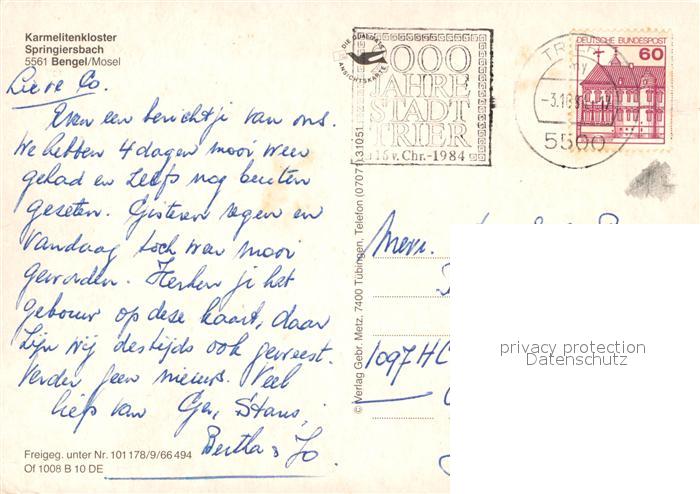 Karmelitenkloster
Springiersbach
5561 Bengel/Mosel
Lieve Co.
Even een berichtje van ons.
We hebben 4 dagen mooi weer
gehad en zelfs nog buiten
gezeten. Gisteren regen en
vandaag toch weer mooi
geworden. Herken je het
gebouw op deze kaart, daar
zijn wij destijds ook geweest.
Verder geen nieuws. Veel
liefs van Ger, Stans,
Bertha & Jo
Freigeg. unter Nr. 101178/9/66494
Of 1008 B 10 DE
© Verlag Gebr. Metz, 7400 Tübingen, Telefon (07071) 31051
DIE
ANSICHTSKARTE
2000
JAHRE
STADT
TRIER
16 v. Chr.-1984
TRIER
-3.10.
5500
DEUTSCHE BUNDESPOST
60
Mevr.
1097 HC
privacy protection
Datenschutz